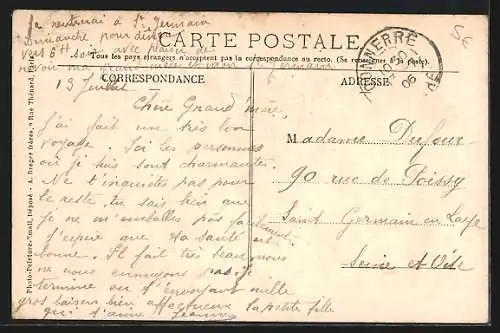 Je rentrerai à St Germain
Dimanche pour dîner
vers 6h soir avec plaisir de
revoir ma grand mère et mon St Germain
CARTE POSTALE
Tous les pays étrangers n'acceptent pas la correspondance au recto. (Se renseigner à la poste).
CORRESPONDANCE
ADRESSE
TONNERRE
06
5€
13 Juillet
Chère Grand'mère,
J'ai fait un très bon
voyage. Ici les personnes
où je suis sont charmantes.
Ne t'inquiètes pas pour
le reste, tu sais bien que
je ne m'emballes pas facilement.
J'espère que ta santé est
bonne. Il fait très beau, nous
ne nous ennuyons pas. Je
termine en t'envoyant mille
gros baisers bien affectueux
la petite fille
qui t'aime Jeanne
Madame Dufour
90 rue de Poissy
Saint Germain en Laye
Seine et Oise
Photo-Peinture-Email, Déposé - A. Breger frères, 9 Rue Thénard, Paris